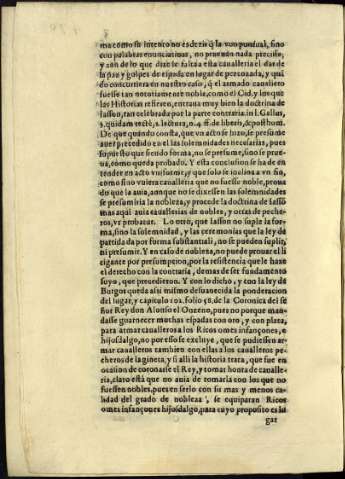 ma como se intento no es dezir q̃ la vvo puntual, sino
con palabras enunciatiuas, no prueuan nada preciso,
y aun de lo que dize se saltaia esta caualleria el dar de
la paz y golpes de espada en lugar de pescoçada, y quã
do concurriera en nuestro caso, q̃ el armado cauallero
fuesse tan notoriamente noble, como el Cid, y los que
las Historias refieren, entraua muy bien la doctrina de
Iasson, tan celebrada por la parte contraria, in l. Gallus,
§. quidam rectè, 1. lectura, n. 4. ff. de liberis, & posthum.
De que quando consta, que vn acto se hizo, se presume
auer precedido en el las solemnidades necesarias, pues
supuesto que siendo forma, no se presume, sino se prue-
ua, como queda probado. Y esta conclusion se ha de en
tender en acto vniforme, y que solo se inclina a vn fin,
como sino vuiera caualleria que no fuesse noble, proua
do que la auia, aunque no se dixessen las solemnidades
se presumiria la nobleza, y procede la doctrina de Iasson
mas aqui auia cauallerias de nobles, y otras de peche-
ros, vt probatur. Lo otro, que Iasson no suple la for-
ma, sino la solemnidad, y las ceremonias que la ley de
partida da por forma substantiali, no se pueden suplir,
ni presumir. Y en caso de nobleza, no puede prouar el li
tigante por presumption, por la resistencia que le haze
el derecho con la contraria, demas de ser fundamento
suyo, que preuedieron. Y con lo dicho, y con la ley de
Burgos queda assi mismo desuanecida la ponderacion
del lugar, y capitulo 102. folio 58. de la Coronica del se
ñor Rey don Alonso el Onzeno, para no porque man-
dasse guarnecer muchas espadas con oro, y con plata,
para armar caualleros a los Ricos omes infançones, e
hijosdalgo, no por esso se excluye, que se pudiessen ar-
mar caualleros tambien con ellas a los caualleros pe-
cheros de la gineta, y si alli la historia trata, que fue en
ocasion de coronarse el Rey, y tomar honra de caualle-
ria, claro está que no auia de tomarla con los que no
fuessen nobles, pues en serlo con su mas y menos ca-
lidad del grado de nobleza, se equiparan Ricos
omes infançones hijosdalgo, para cuyo proposito es lu
gar